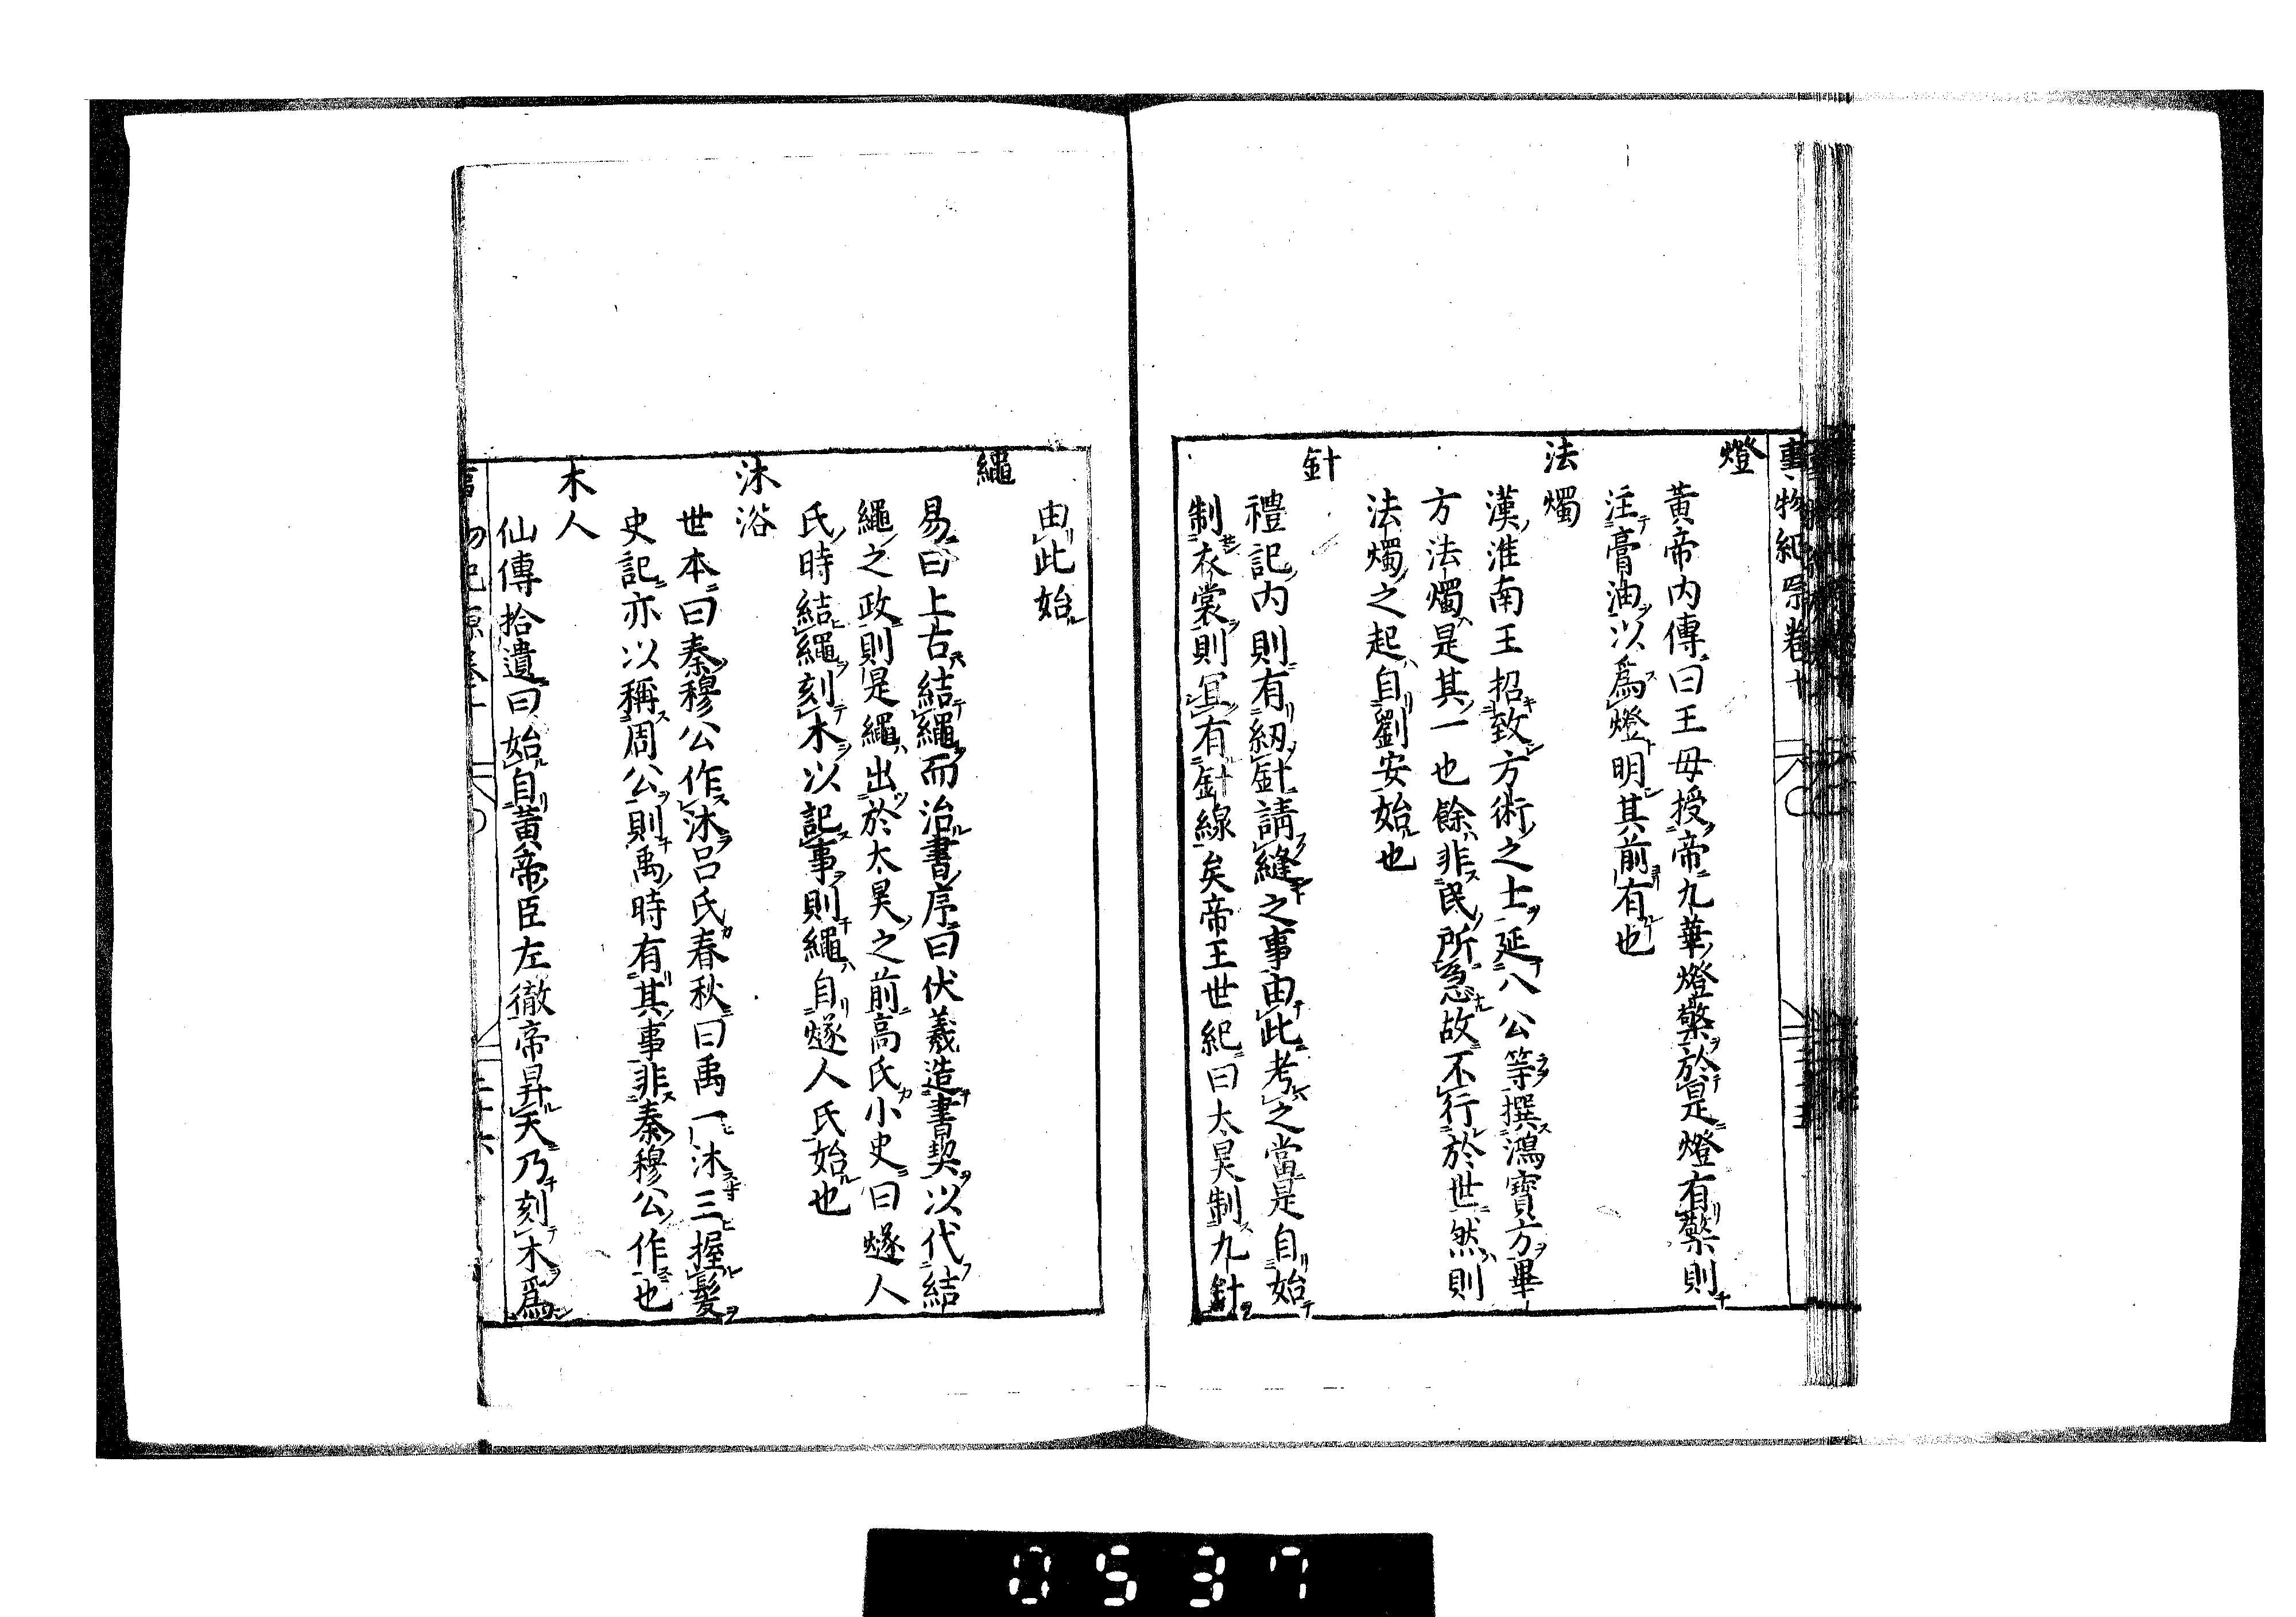 事物紀原卷十
燈
黃帝內傳曰王母授帝九華燈檠於是燈有檠則
注膏油以爲燈明其前有也
法燭
漢淮南王招致方術之士延八公等撰鴻寶方畢
方法燭是其一也餘非民所急故不行於世然則
法燭之起自劉安始也
針
禮記內則有紉針請縫之事由此考之當是自始
制衣裳則冝有針線矣帝王世紀曰太昊制九針
由此始
繩
易曰上古結繩而治書序曰伏羲造書契以代結
繩之政則是繩出於太昊之前高氏小史曰燧人
氏時結繩刻木以記事則繩自燧人氏始也
沐浴
世本曰秦穆公作沐呂氏春秋曰禹一沐三握髮
史記亦以稱周公則禹時有其事非秦穆公作也
木人
仙傳拾遺曰始自黃帝臣左徹帝昇天乃刻木爲
0537